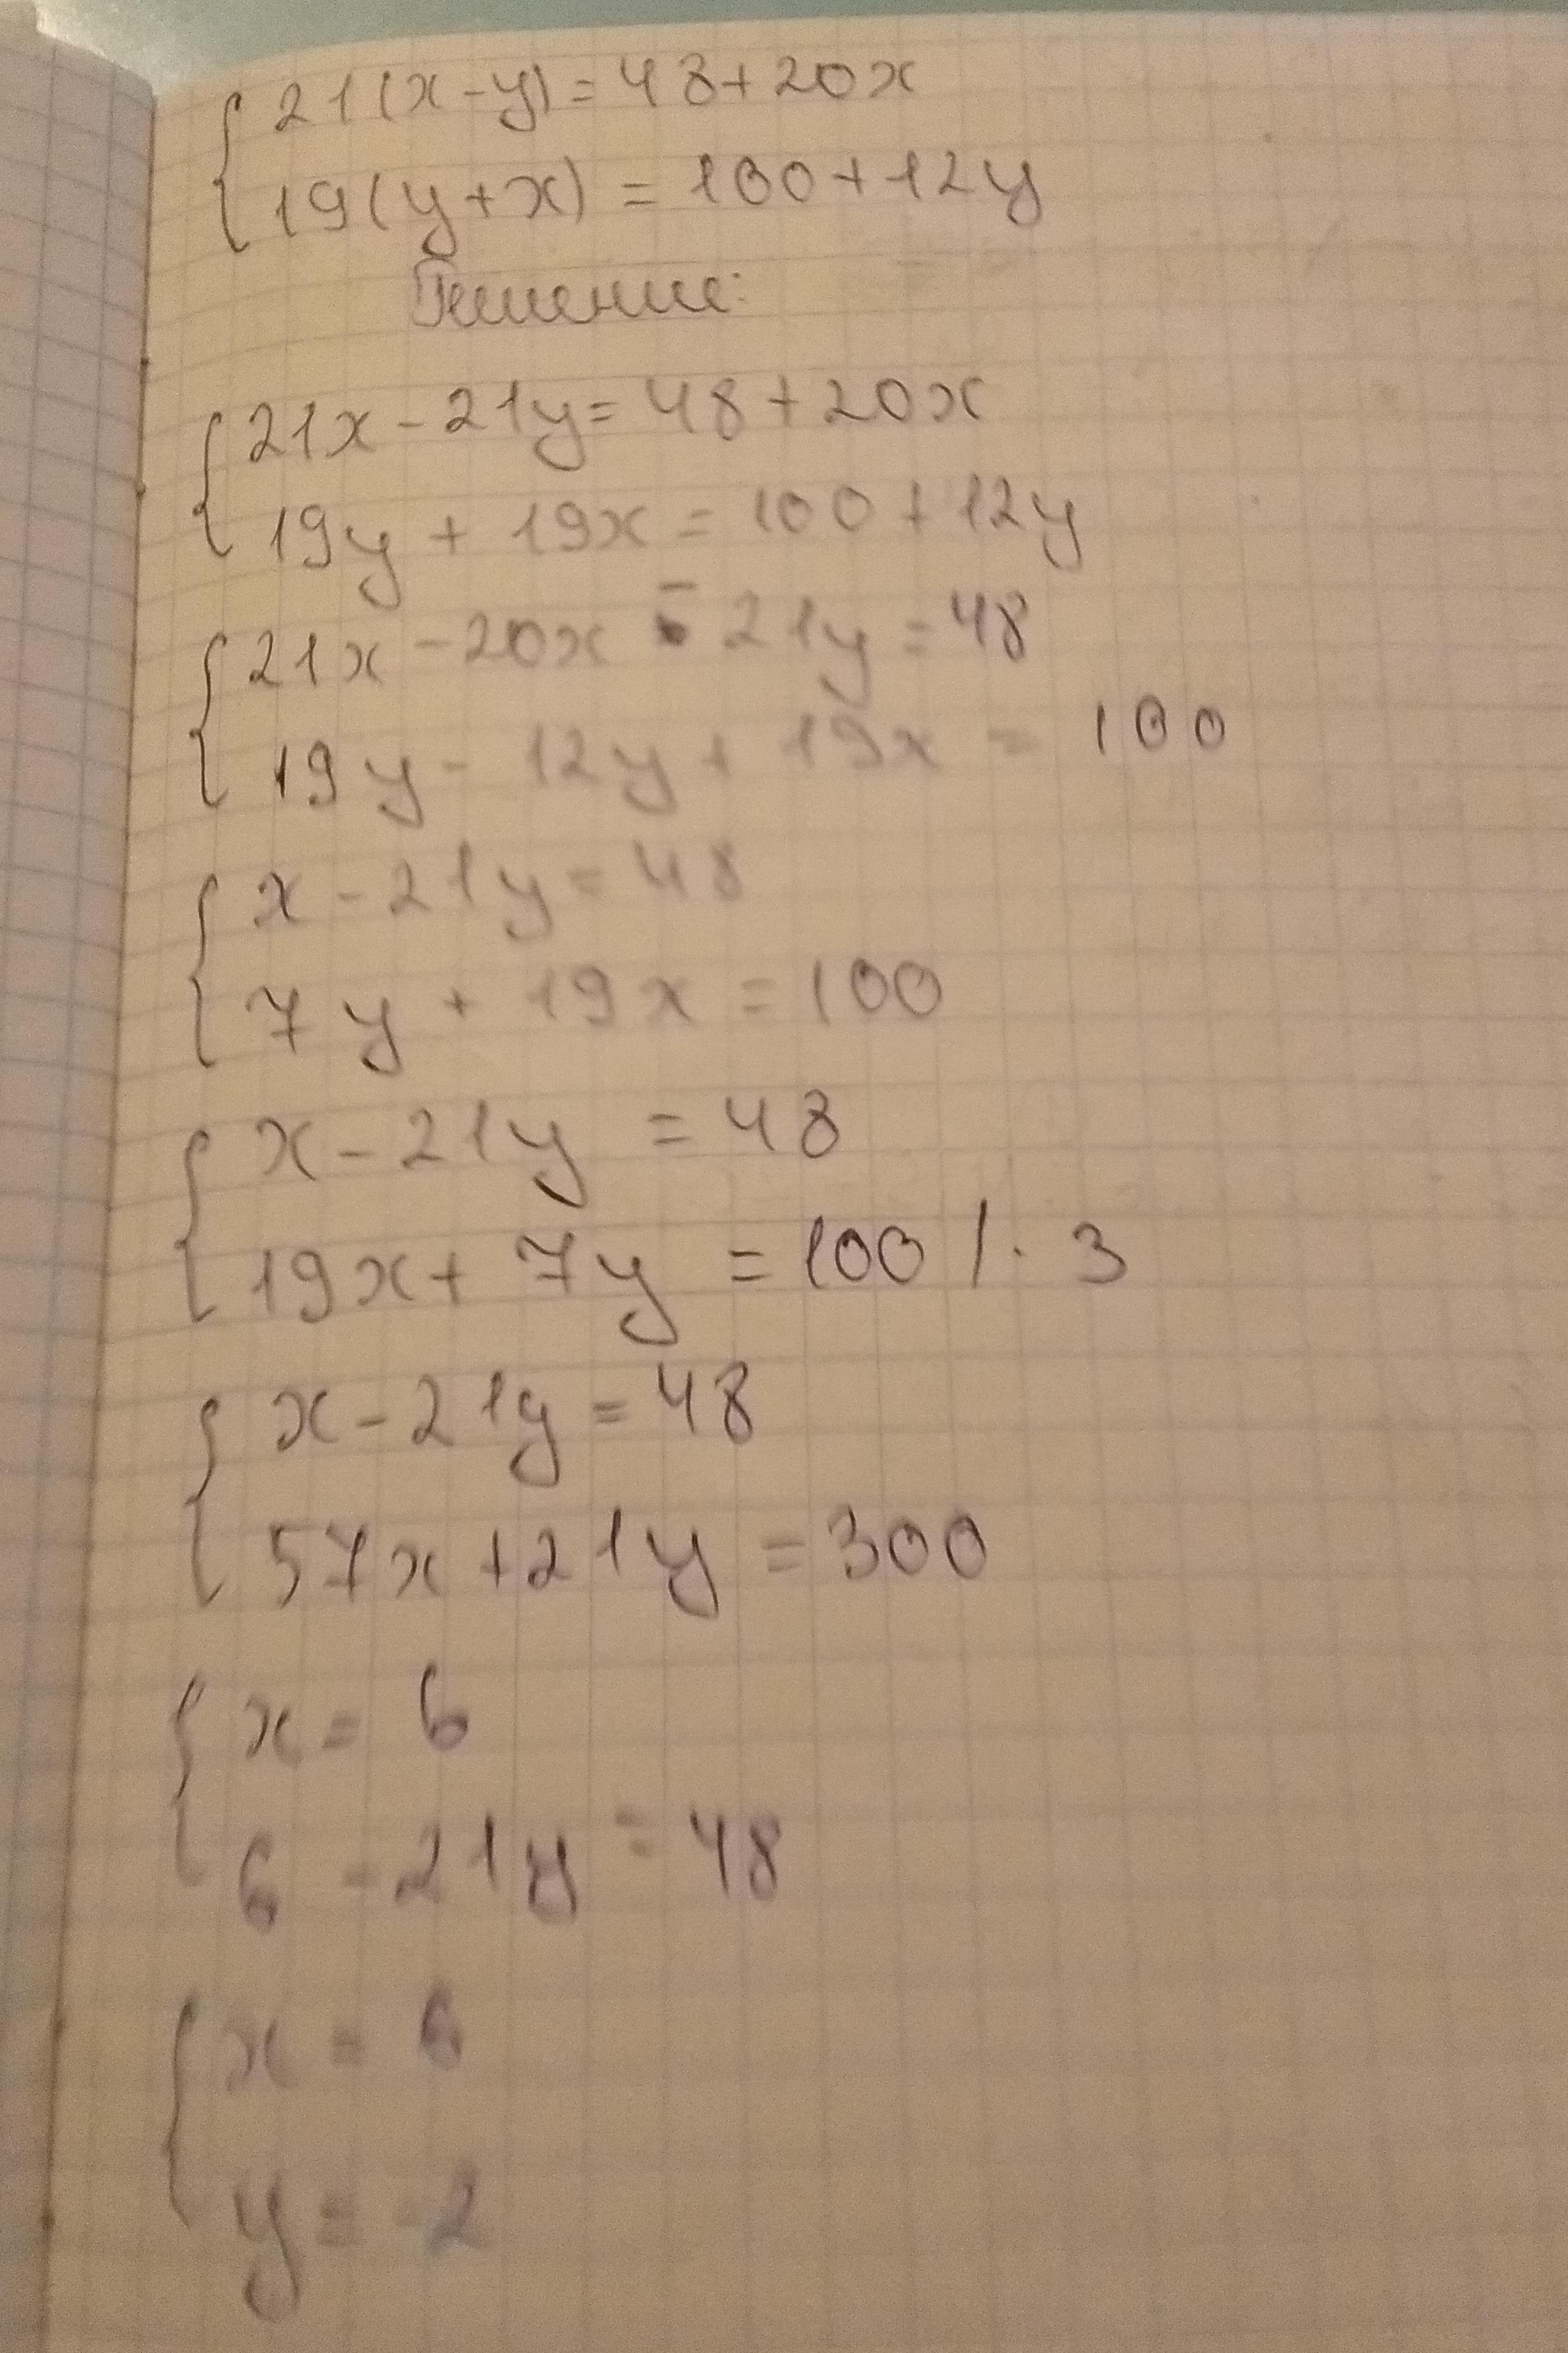 21(x-y)=48+20x
19(y+x)=100+12y
Решение:
21x-21y=48+20x
19y+19x=100+12y
21x-20x-21y=48
19y-12y+19x=100
x-21y=48
7y+19x=100
x-21y=48
19x+7y=100 | · 3
x-21y=48
57x+21y=300
x=6
6-21y=48
x=6
y=-2